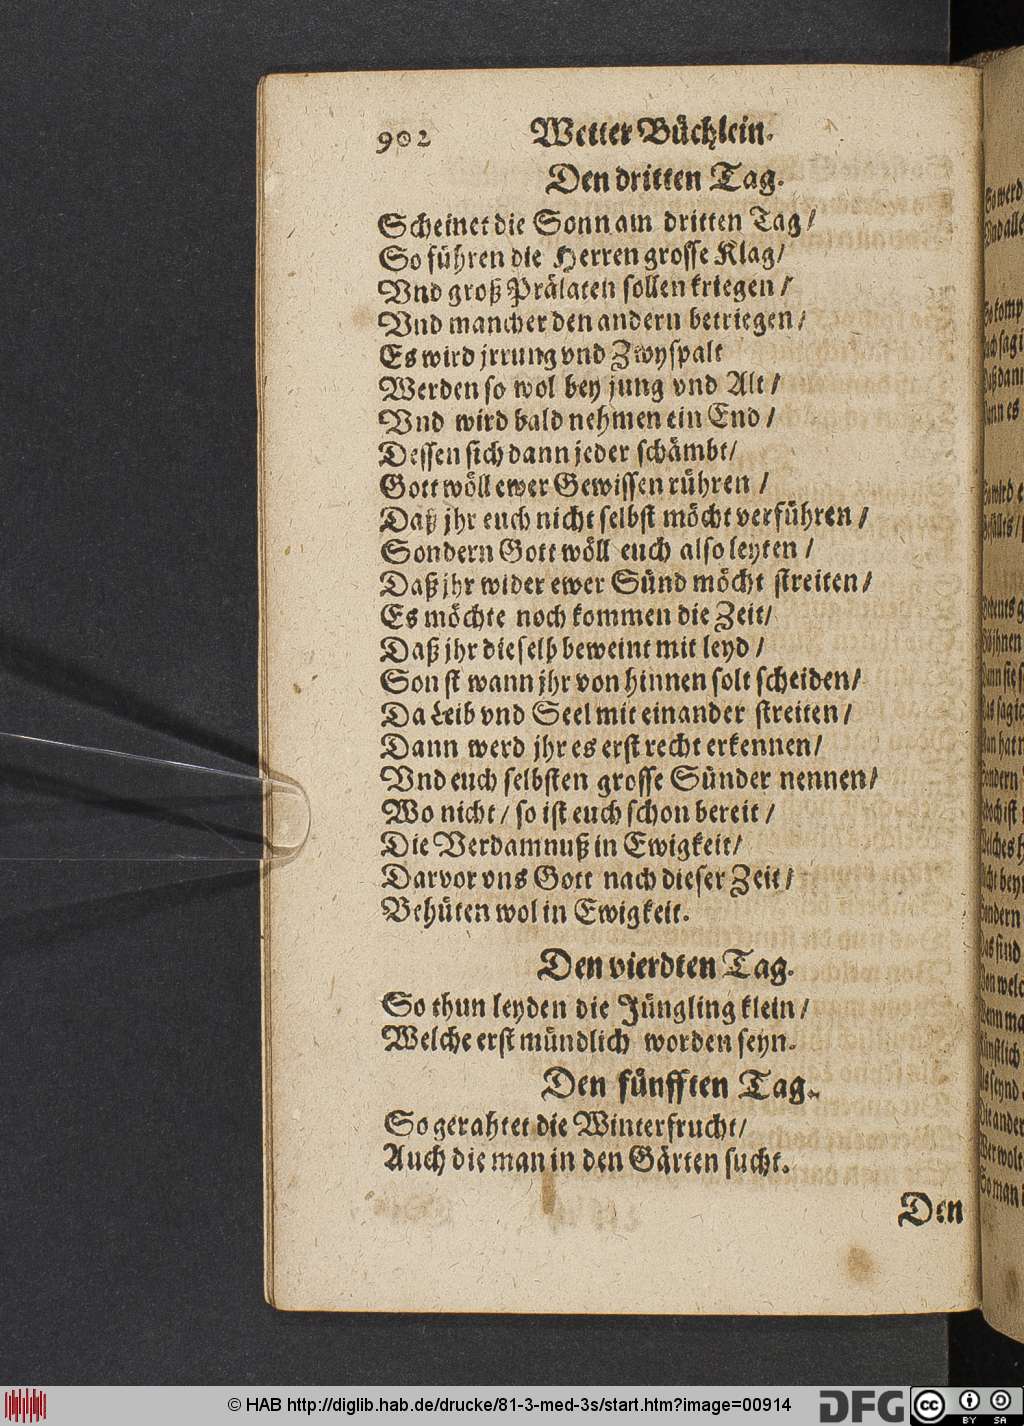 902 Wetter Büchlein.
Den dritten Tag.
Scheinet die Sonn am dritten Tag/
So führen die Herren grosse Klag/
Vnd groß Prälaten sollen kriegen/
Vnd mancher den andern betriegen/
Es wird jrrung vnd Zwyspalt
Werden so wol bey jung vnd Alt/
Vnd wird bald nehmen ein End/
Dessen sich dann jeder schämbt/
Gott wöll ewer Gewissen rühren/
Daß jhr euch nicht selbst möcht verführen/
Sondern Gott wöll euch also leyten/
Daß jhr wider ewer Sünd möcht streiten/
Es möchte noch kommen die Zeit/
Daß jhr dieselb beweint mit leyd/
Sonst wann jhr von hinnen solt scheiden/
Da Leib vnd Seel mit einander streiten/
Dann werd jhr es erst recht erkennen/
Vnd euch selbsten grosse Sünder nennen/
Wo nicht/ so ist euch schon bereit/
Die Verdamnuß in Ewigkeit/
Darvor vns Gott nach dieser Zeit/
Behüten wol in Ewigkeit.
Den vierdten Tag.
So thun leyden die Jüngling klein/
Welche erst mündlich worden seyn.
Den fünfften Tag.
So gerahtet die Winterfrucht/
Auch die man in den Gärten sucht.
Den
© HAB http://diglib.hab.de/drucke/81-3-med-3s/start.htm?image=00914
DFG
cc BY SA